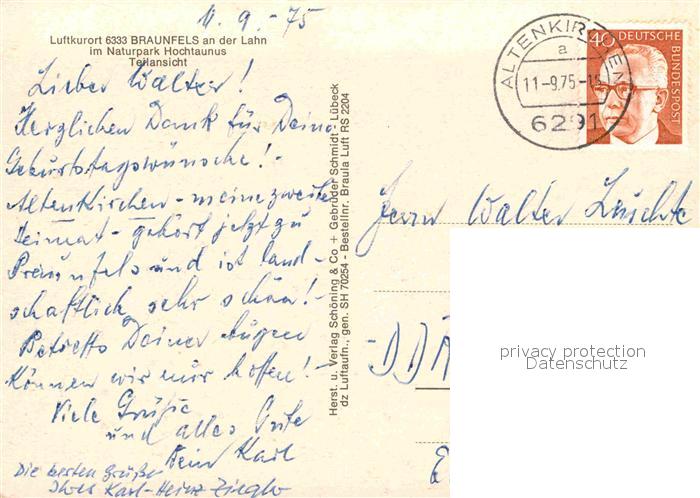 11.9.-75
Luftkurort 6333 BRAUNFELS an der Lahn
im Naturpark Hochtaunus
Teilansicht
Lieber Walter!
Herzlichen Dank für Deine
Geburtstagswünsche!-
Altenkirchen - meine zweite
Heimat - gehört jetzt zu
Braunfels und ist land-
schaftlich sehr schön!-
Betreffs Deiner Augen
können wir nur hoffen!-
Viele Grüße
und alles Gute
Dein Karl
Die besten Grüße
Ihres Karl-Heinz
Herst. u. Verlag Schöning & Co + Gebrüder Schmidt - Lübeck
dz Luftaufn., gen. SH 70254 - Bestellnr. Braula Luft RS 2204
ALTENKIRCHEN
a
11-9.75-
6291
40 DEUTSCHE
BUNDESPOST
Herrn Walter
DD
privacy protection
Datenschutz